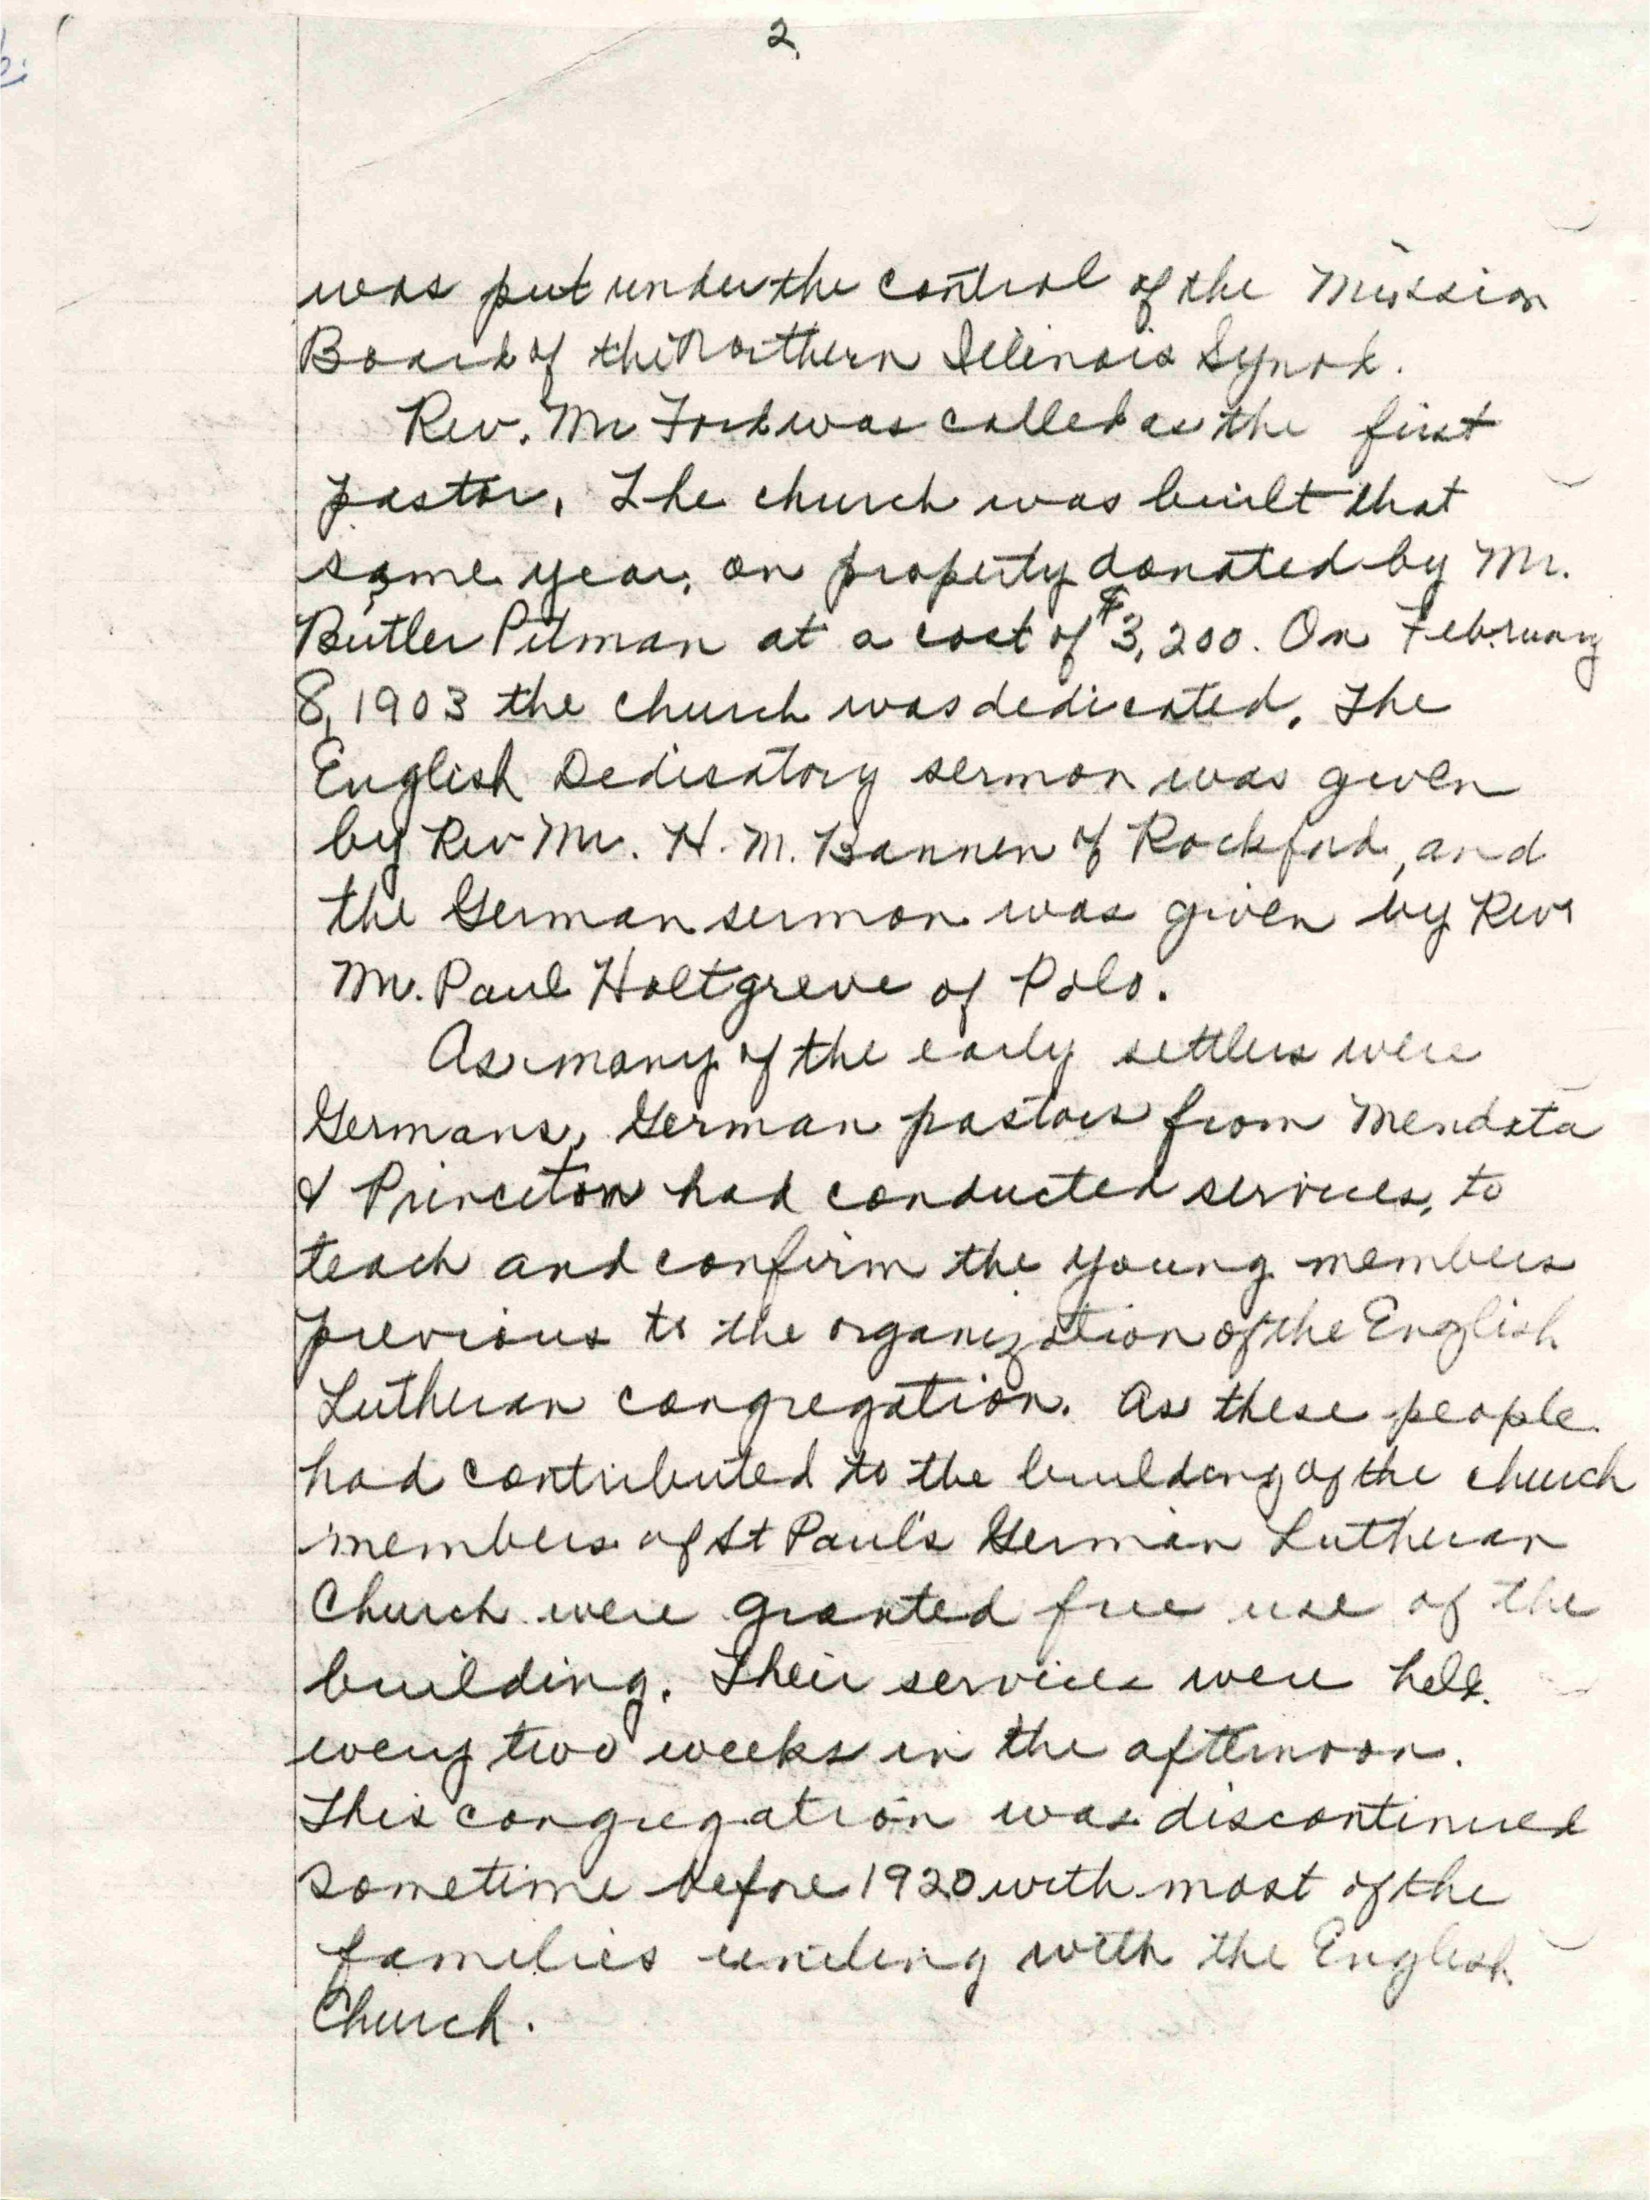 2.
was put under the control of the Mission
Board of the Northern Illinois Synod.
Rev. Mr Ford was called as the first
pastor. The church was built that
same year, on property donated by Mr.
Butler Pitman at a cost of $3,200. On February
8, 1903 the church was dedicated. The
English Dedicatory sermon was given
by Rev Mr. H. M. Bannen of Rockford, and
the German sermon was given by Rev.
Mr. Paul Holtgreve of Polo.
As many of the early settlers were
Germans, German pastors from Mendota
& Princeton had conducted services, to
teach and confirm the young members
previous to the organization of the English
Lutheran congregation. As these people
had contributed to the building of the church
members of St Paul's German Lutheran
Church were granted free use of the
building. Their services were held
every two weeks in the afternoon.
This congregation was discontinued
sometime before 1920 with most of the
families uniting with the English
Church.